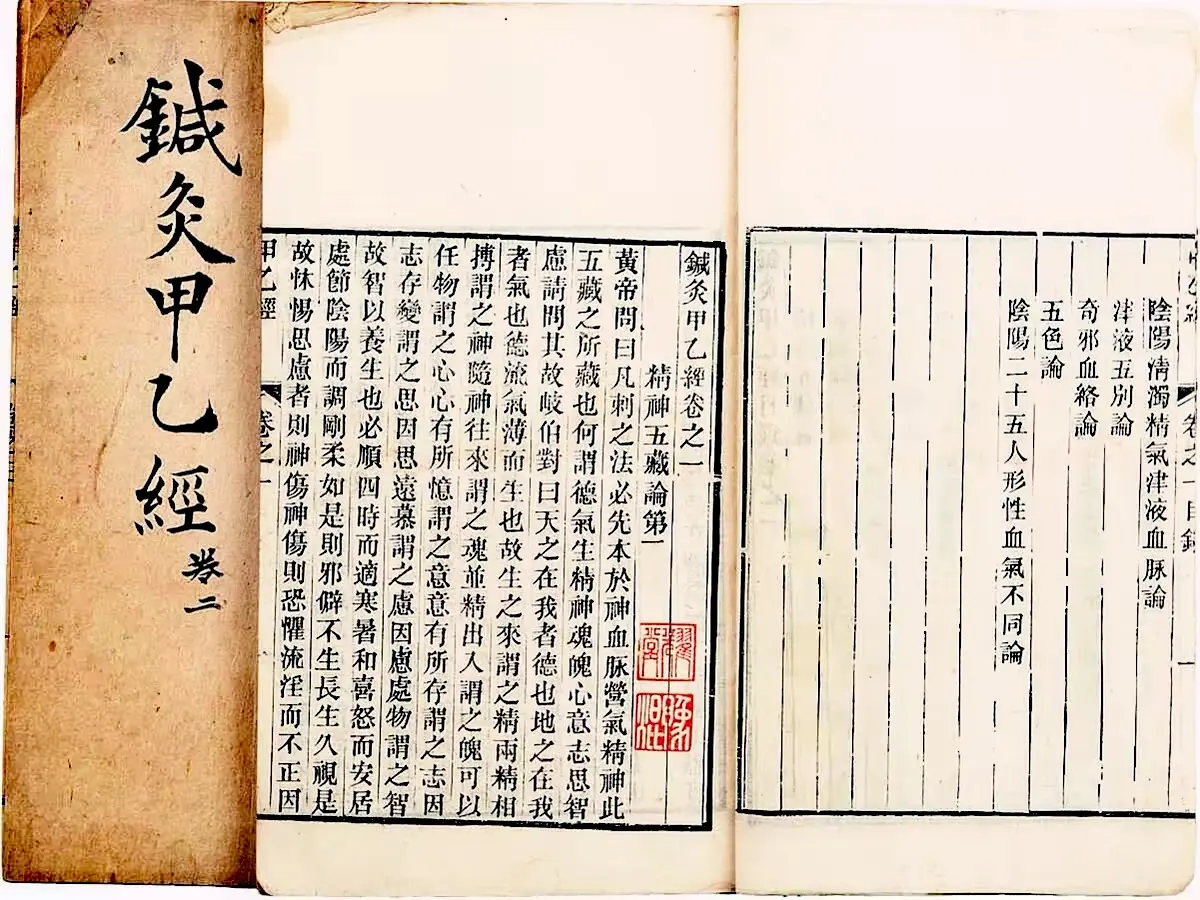 鍼灸甲乙經
卷二
卷之一目錄
一
陰陽清濁精氣津液血脉論
津液五別論
奇邪血絡論
五色論
陰陽二十五人形性血氣不同論
鍼灸甲乙經卷之一
精神五藏論第一
黃帝問曰凡刺之法必先本於神血脉營氣精神此
五藏之所藏也何謂德氣生精神魂魄心意志思智
慮請問其故岐伯對曰天之在我者德也地之在我
者氣也德流氣薄而生也故生之來謂之精兩精相
搏謂之神隨神往來謂之魂並精出入謂之魄可以
任物謂之心心有所憶謂之意意有所存謂之志因
志存變謂之思因思遠慕謂之慮因慮處物謂之智
故智以養生也必順四時而適寒暑和喜怒而安居
處節陰陽而調剛柔如是則邪僻不生長生久視是
故怵惕思慮者則神傷神傷則恐懼流淫而不正因
甲乙經 卷之一